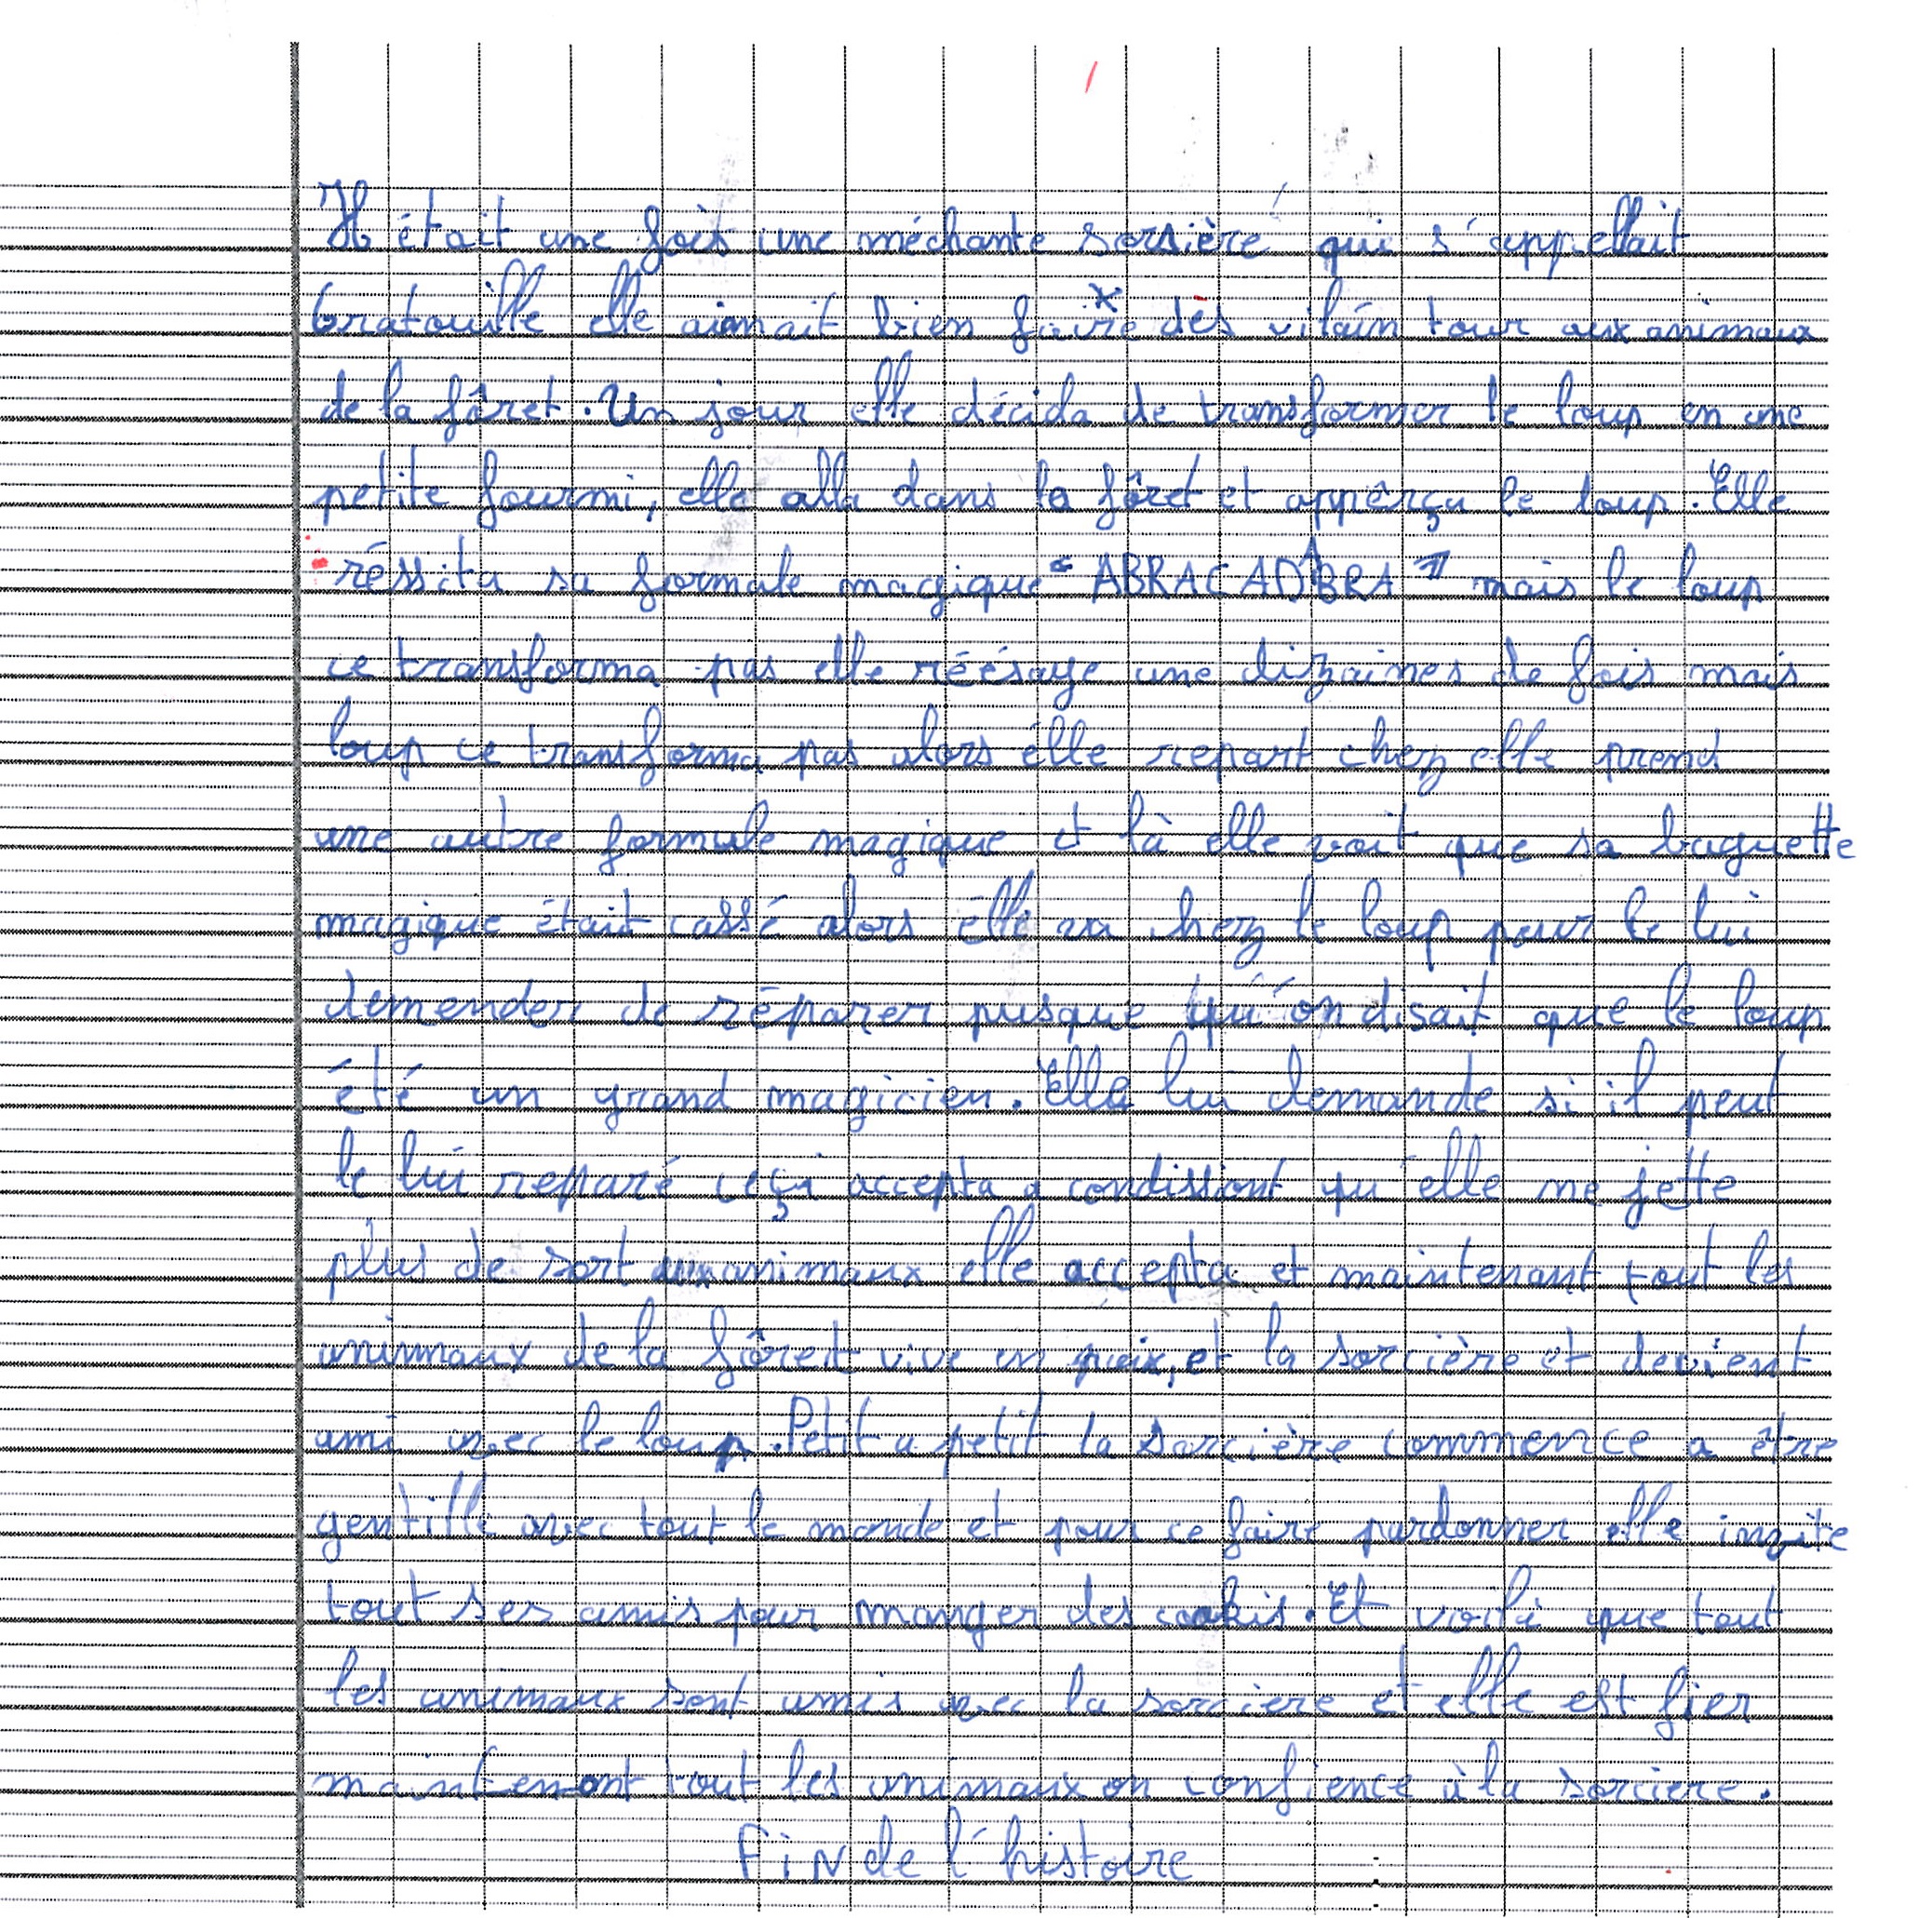 Il était une fois une méchante sorsière qui s'appellait
Gratouille elle aimait bien faire dès vilain tour aux animaux
de la fôret. Un jour elle décida de transformer le loup en une
petite fourmi, elle alla dans la fôret et appêrçu le loup. Elle
réssita sa formule magique "ABRACADABRA" mais le loup
ce transforma pas elle réésaye une dizaines de fois mais
loup ce transforma pas alors élle repart chez elle prend
une autre formule magique et là elle voit que sa baguette
magique était cassé alors élle va chez le loup pour le lui
demender de réparer pusque qu'on disait que le loup
été un grand magicien. Elle lui demande si il peut
le lui reparé ceçi accepta a condissiont qu'elle ne jette
plus de sort aux animaux elle accepta et maintenant tout les
animmaux de la fôret vive en paix, et la sorcière et devient
ami avec le loup. Petit a petit la sorcière commence a être
gentille avec tout le monde et pour ce faire pardonner elle invite
tout ses amis pour manger des cookis. Et voilà que tout
les animaux sont amis avec la sorciere et elle est fier
maintenant tout les animaux on confience à la sorciere.
FiN de l'histoire